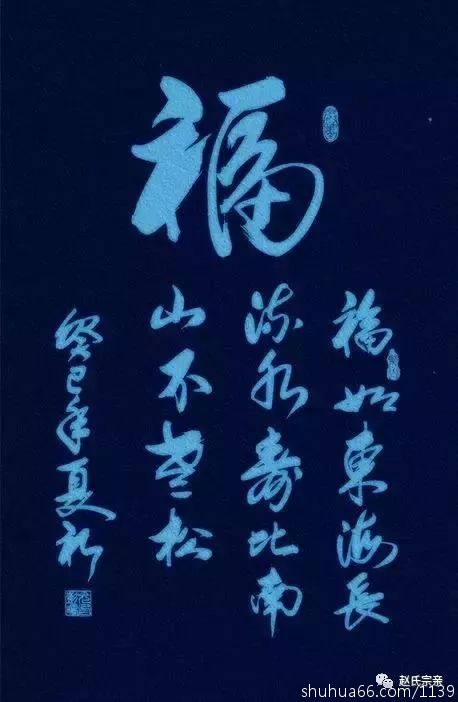 福
福如東海長
流水壽比南
山不老松
癸巳年夏
赵氏宗亲
shuhua66.com/1139